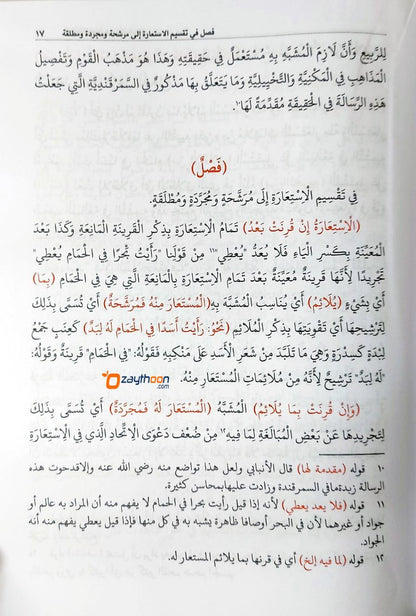 فصل في تقسيم الاستعارة إلى مرشحة ومجردة ومطلقة ١٧
لِلرَّبِيعِ وَأَنَّ لَازِمَ الْمُشَبَّهِ بِهِ مُسْتَعْمَلٌ فِي حَقِيقَتِهِ وَهَذَا هُوَ مَذْهَبُ الْقَوْمِ وَتَفْصِيلُ
الْمَذَاهِبِ فِي الْمَكْنِيَّةِ وَالتَّخْيِيلِيَّةِ وَمَا يَتَعَلَّقُ بِهَا مَذْكُورٌ فِي السَّمَرْقَنْدِيَّةِ الَّتِي جَعَلْتُ
هَذِهِ الرِّسَالَةَ فِي الْحَقِيقَةِ مُقَدِّمَةً لَهَا١٠.
(فَصْلٌ)
فِي تَقْسِيمِ الْاِسْتِعَارَةِ إِلَى مُرَشَّحَةٍ وَمُجَرَّدَةٍ وَمُطْلَقَةٍ.
(الْاِسْتِعَارَةُ إِنْ قُرِنَتْ بَعْدُ) تَمَامُ الْاِسْتِعَارَةِ بِذِكْرِ الْقَرِينَةِ الْمَانِعَةِ وَكَذَا بَعْدَ
الْمُعَيِّنَةِ بِكَسْرِ الْيَاءِ فَلَا يُعَدُّ "يُعْطِي"١١ مِنْ قَوْلِنَا "رَأَيْتُ بَحْرًا فِي الْحَمَامِ يُعْطِي"
تَجْرِيدًا لِأَنَّهَا قَرِينَةٌ مُعَيِّنَةٌ بَعْدَ تَمَامِ الْاِسْتِعَارَةِ بِالْمَانِعَةِ الَّتِي هِيَ فِي الْحَمَامِ (بِمَا)
أَيْ بِشَيْءٍ (يُلَائِمُ) أَيْ يُنَاسِبُ الْمُشَبَّهَ بِهِ (الْمُسْتَعَارَ مِنْهُ فَمُرَشَّحَةٌ) أَيْ تُسَمَّى بِذَلِكَ
لِتَرْشِيحِهَا أَيْ تَقْوِيَتِهَا بِذِكْرِ الْمُلَائِمِ (نَحْوُ: رَأَيْتُ أَسَدًا فِي الْحَمَامِ لَهُ لِبَدٌ) كَعِنَبٍ جَمْعُ
لِبْدَةٍ كَسِدْرَةٍ وَهِيَ مَا تَلَبَّدَ مِنْ شَعَرِ الْأَسَدِ عَلَى مَنْكِبَيْهِ فَقَوْلُهُ: "فِي الْحَمَامِ" قَرِينَةٌ وَقَوْلُهُ:
"لَهُ لِبَدٌ" تَرْشِيحٌ لِأَنَّهُ مِنْ مُلَائِمَاتِ الْمُسْتَعَارِ مِنْهُ.
Ozaythoon.com
(وَإِنْ قُرِنَتْ بِمَا يُلَائِمُ) الْمُشَبَّهَ (الْمُسْتَعَارَ لَهُ فَمُجَرَّدَةٌ) أَيْ تُسَمَّى بِذَلِكَ
لِتَجْرِيدِهَا عَنْ بَعْضِ الْمُبَالَغَةِ لِمَا فِيهِ١٢ مِنْ ضُعْفِ دَعْوَى الْاِتِّحَادِ الَّذِي فِي الْاِسْتِعَارَةِ
١٠ قوله (مقدمة لها) قال الأنبابي ولعل هذا تواضع منه رضي الله عنه والافقدحوت هذه
الرسالة زبدةمافي السمرقندة وزادت عليهابمحاسن كثيرة.
١١ قوله (فلا يعد يعطي) لأنه إذا قيل رأيت بحرا في الحمام لا يفهم منه أن المراد به عالم أو
جواد أو غيرهما لأن في البحر أوصافا ظاهرة يشبه به في كل منها فإذا قيل يعطي يفهم منه أنه
الجواد.
١٢ قوله (لما فيه إلخ) أي في قرنها بما يلائم المستعار له.